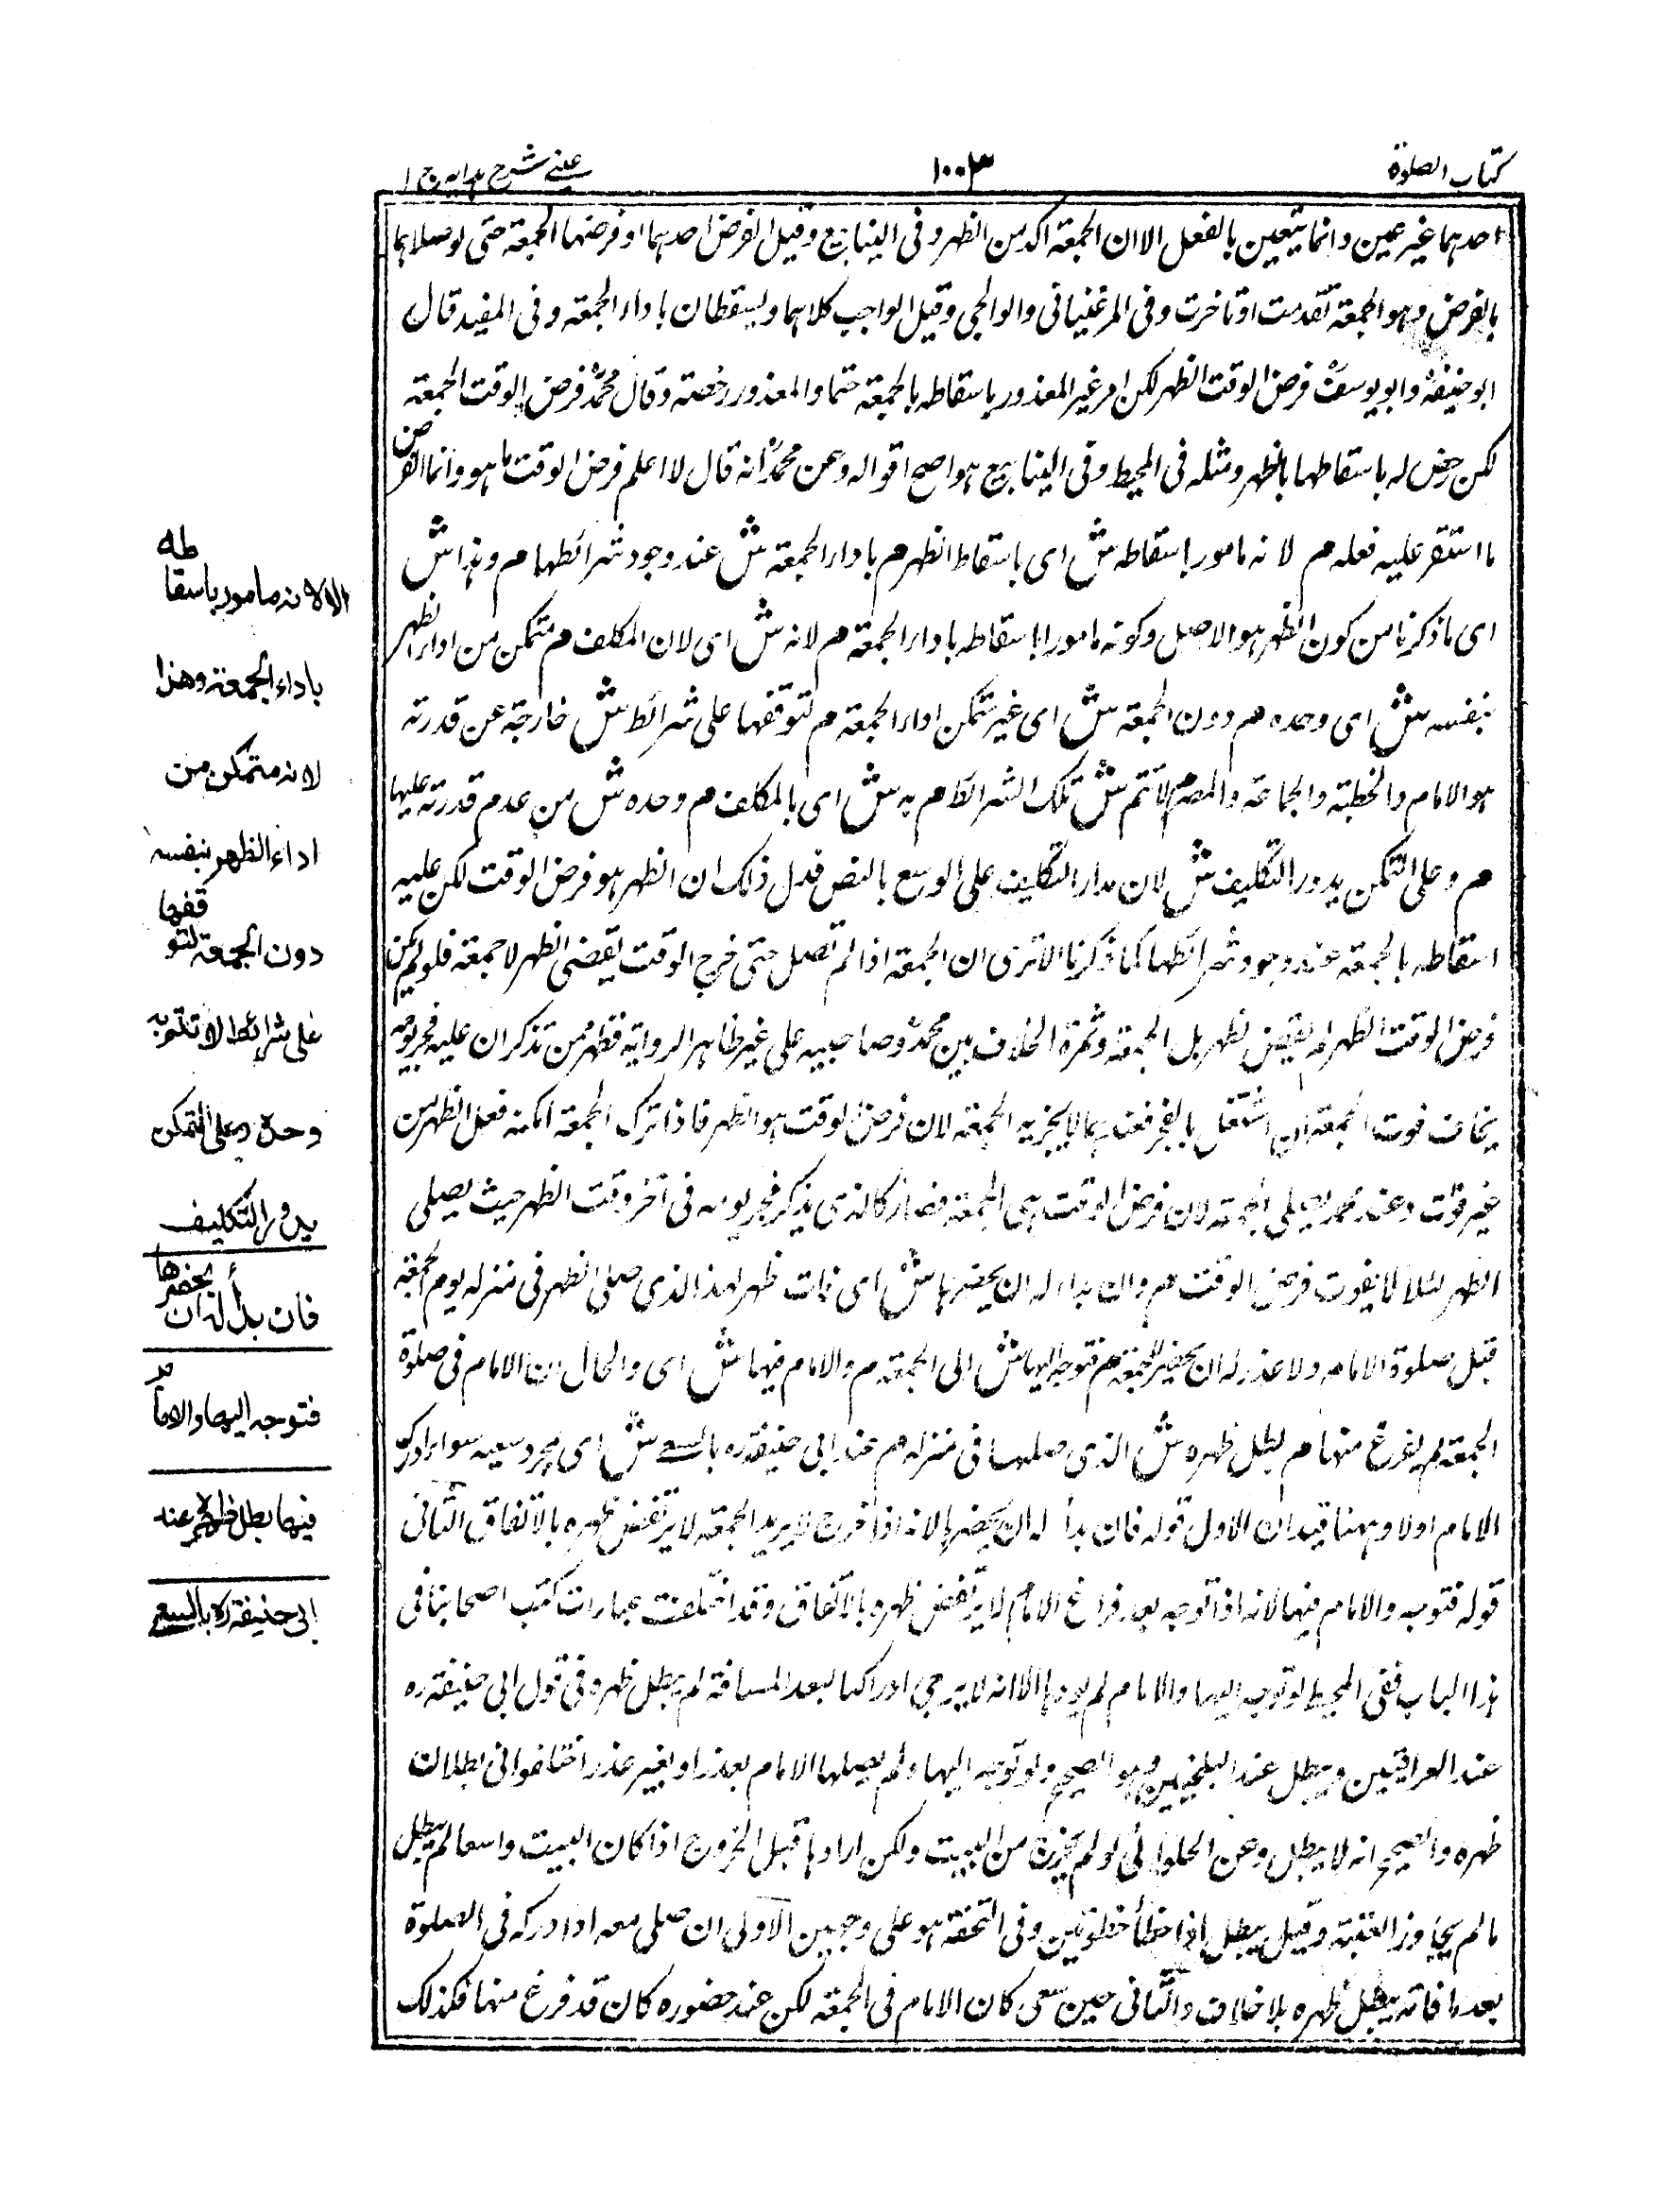 كتاب الصلوة
١٠٠٣
عينے شرح ہدایہ ج ١
احدہما غیر عین وانما یتعین بالفعل الا ان الجمعۃ اکد من الظہر و فی الینابیع وقیل الفرض احدہما او فرضہا الجمعۃ حتی لو صلاہما
بالفرض وہو الجمعۃ تقدمت او تاخرت و فی المرغینانی والوالجی وقیل الواجب کلاہما ویسقطان باداء الجمعۃ و فی المفید قال
ابو حنیفۃؒ وابو یوسفؒ فرض الوقت الظہر لکن امر غیر المعذور باسقاطہ بالجمعۃ حتما والمعذور رخصۃ وقال محمدؒ فرض الوقت الجمعۃ
لکن رخص لہ باسقاطہا بالظہر ومثلہ فی المحیط و فی الینابیع ہو اصح اقوالہ وعن محمدؒ انہ قال لا اعلم فرض الوقت ما ہو وانما الفرض
ما استقر علیہ فعلہ م لانہ مامور باسقاطہ ش ای باسقاط الظہر م باداء الجمعۃ ش عند وجود شرائطہا م وہذا ش
ای ما ذکرنا من کون الظہر ہو الاصل وکونہ مامورا باسقاطہ باداء الجمعۃ م لانہ ش ای لان المکلف م متمکن من اداء الظہر
بنفسہ ش ای وحدہ م دون الجمعۃ ش ای غیر متمکن اداء الجمعۃ م لتوقفہا علی شرائط ش خارجۃ عن قدرتہ
ہو الامام والخطبۃ والجماعۃ والمصر م لا تتم ش تلک الشرائط م بہ ش ای بالمکلف م وحدہ ش من عدم قدرتہ علیہا
م وعلی التمکن یدور التکلیف ش لان مدار التکلیف علی الوسع بالنص فدل ذلک ان الظہر ہو فرض الوقت لکن علیہ
اسقاطہ بالجمعۃ عند وجود شرائطہا کما ذکرنا الا تری ان الجمعۃ اذا لم تصل حتی خرج الوقت یقضی الظہر لا جمعۃ فلو لم یکن
فرض الوقت الظہر لم یقض الظہر بل الجمعۃ وثمرۃ الخلاف بین محمدؒ وصاحبیہ علی غیر ظاہر الروایۃ فظہر من تذکر ان علیہ فجر یومہ
یخاف فوت الجمعۃ ان اشتغل بالفجر فعندہما لا یجزیہ الجمعۃ لان فرض الوقت ہو الظہر فاذا ترک الجمعۃ امکنہ فعل الظہر من
غیر فوت وعند محمد یصلی الجمعۃ لان فرض الوقت ہی الجمعۃ فصار کالذی یذکر فجر یومہ فی آخر وقت الظہر حیث یصلی
الظہر لئلا یفوت فرض الوقت م وان بداء لہ ان یحضرہا ش ای فات ظہر لہذا الذی صلی الظہر فی منزلہ یوم الجمعۃ
قبل صلوۃ الامام ولا عذر لہ ان یحضر الجمعۃ م فتوجہ الیہا ش الی الجمعۃ م والامام فیہا ش ای والحال ان الامام فی صلوۃ
الجمعۃ لم یفرغ منہا م بطل ظہرہ ش الذی صلہا فی منزلہ م عند ابی حنیفۃ رہ بالسعے ش ای بمجرد سعیہ سواء ادرک
الامام اولا وہہنا قیدان الاول قولہ فان بدأ لہ ان یحضرہا لانہ اذا خرج لا یرید الجمعۃ لا یرتفض ظہرہ بالاتفاق الثانی
قولہ فتوجہ والامام فیہا لانہ اذا توجہ بعد فراغ الامام لا یرتفض ظہرہ بالاتفاق وقد اختلفت عبارات کتب اصحابنا فی
ہذا الباب ففی المحیط لو توجہ الیہا والامام لم یؤدہا الا انہ لا یرجی ادراکہا لبعد المسافۃ لم یبطل ظہرہ فی قول ابی حنیفۃ رہ
عند العراقیین ویبطل عند البلخیین وہو الصحیح ولو توجہ الیہا ولم یصلہا الامام بعذر او بغیر عذر اختلفوا فی بطلان
ظہرہ والصحیح انہ لا یبطل وعن الحلوائی لو لم یخرج من البیت ولکن ارادہا قبل الخروج اذا کان البیت واسعا لم یبطل
ما لم یجاوز العتبۃ وقیل یبطل اذا خطأ خطوتین و فی التحفۃ ہو علی وجہین الاولی ان صلی معہ اذا درکہ فی الصلوۃ
بعد ما فاتہ یبطل ظہرہ بلا خلاف والثانی حین سعی کان الامام فی الجمعۃ لکن عند حضورہ کان قد فرغ منہا فکذلک
الا لانہ مامور باسقاطہ
باداء الجمعۃ وھذا
لانہ متمکن من
اداء الظھر بنفسہ
دون الجمعۃ لتوقفھا
علی شرائط لا تتم بہ
وحدہ وعلی التمکن
یدور التکلیف
فان بدأ لہ ان یحضرھا
فتوجہ الیھا والامام
فیھا بطل ظھرہ عند
ابی حنیفۃ رہ بالسعی